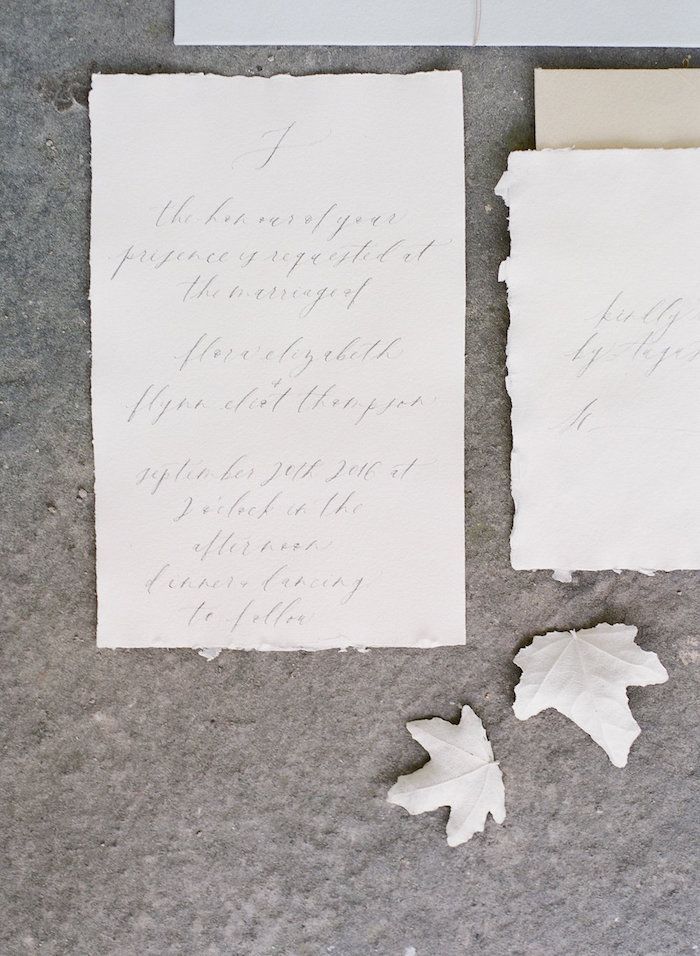 the honour of your
presence is requested at
the marriage of
flora elizabeth
+
flynn eliot thompson
september 20th 2016 at
2 o'clock in the
afternoon
dinner + dancing
to follow
kindly
by